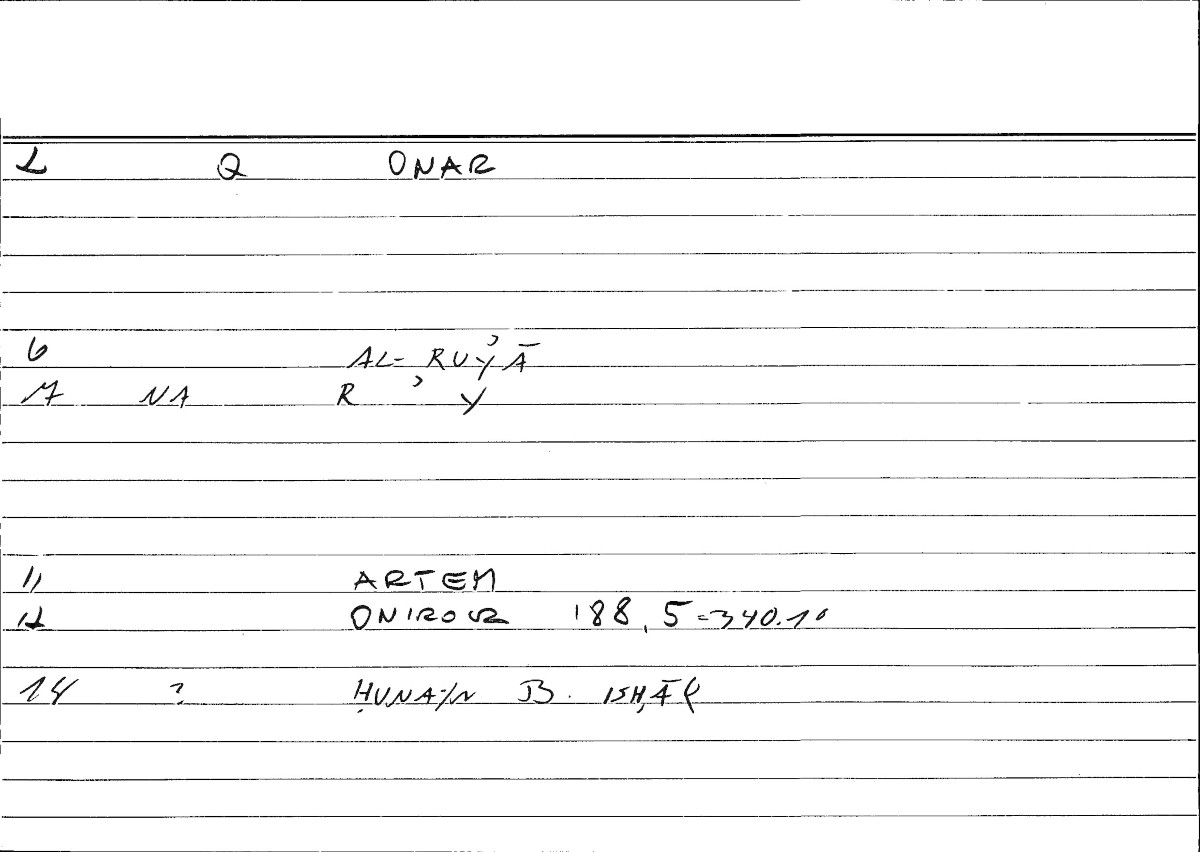 2 Q ONAR
6 AL-RUʾYĀ
7 NA R ʾ Y
11 ARTEM
12 ONIROCR 188,5=340.10
14 ? ḤUNAYN B. ISḤĀQ